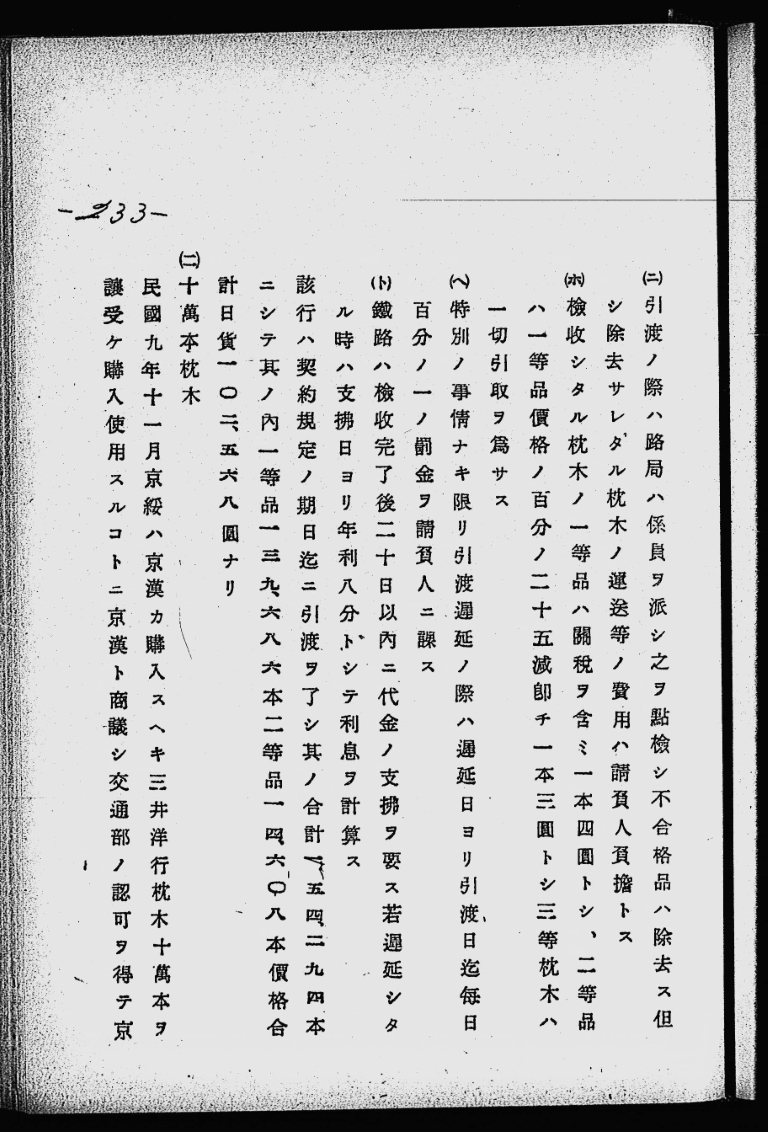 ㈁引渡ノ際ハ路局ハ係員ヲ派シ之ヲ點檢シ不合格品ハ除去ス但
シ除去サレタル枕木ノ運送等ノ費用ハ請負人負擔トス
㈭檢收シタル枕木ノ一等品ハ關稅ヲ含ミ一本四圓トシ、二等品
ハ一等品價格ノ百分ノ二十五減卽チ一本三圓トシ三等枕木ハ
一切引取ヲ爲サス
(ヘ)特別ノ事情ナキ限リ引渡遲延ノ際ハ遲延日ヨリ引渡日迄每日
百分ノ一ノ罰金ヲ請負人ニ課ス
(ト)鐵路ハ檢收完了後二十日以內ニ代金ノ支拂ヲ要ス若遲延シタ
ル時ハ支拂日ヨリ年利八分トシテ利息ヲ計算ス
該行ハ契約規定ノ期日迄ニ引渡ヲ了シ其ノ合計一五四、二九四本
ニシテ其ノ內一等品一三九、六八六本二等品一四、六〇八本價格合
計日貨一〇二、五六八圓ナリ
㈡十萬本枕木
民國九年十一月京綏ハ京漢カ購入スヘキ三井洋行枕木十萬本ヲ
讓受ケ購入使用スルコトニ京漢ト商議シ交通部ノ認可ヲ得テ京
-233-